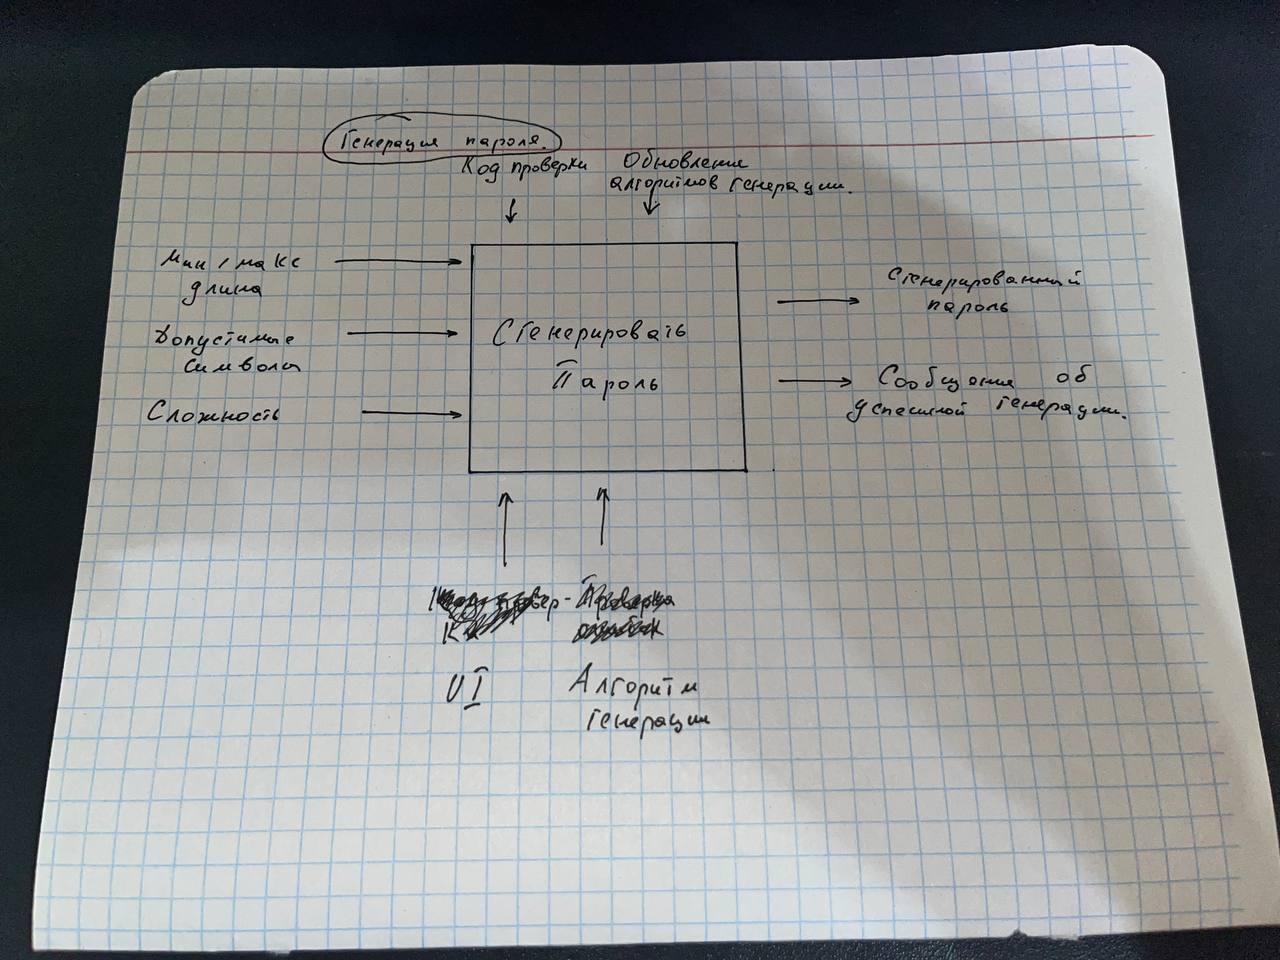 Генерация пароля.
Код проверки
Обновления
алгоритмов генерации.
Мин / макс
длина
Допустимые
символы
Сложность
Сгенерировать
Пароль
Сгенерированный
пароль
Сообщения об
успешной генерации.
Проверка
UI
Алгоритм
генерации